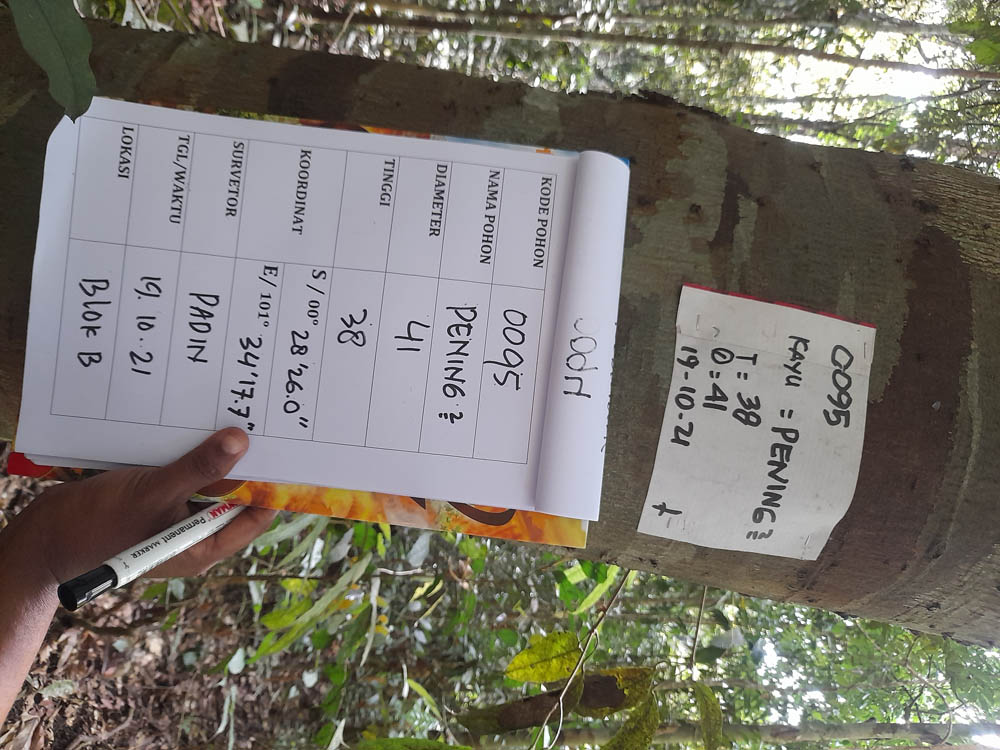 0095
KAYU = PENING2
T = 38
Ø = 41
19-10-21
KODE POHON 0095
NAMA POHON PENING2
DIAMETER 41
TINGGI 38
KOORDINAT S / 00° 28'26.0"
E/ 101° 34'17.7"
SURVETOR PADIN
TGL/WAKTU 19.10.21
LOKASI Blok B
Permanent MARKER